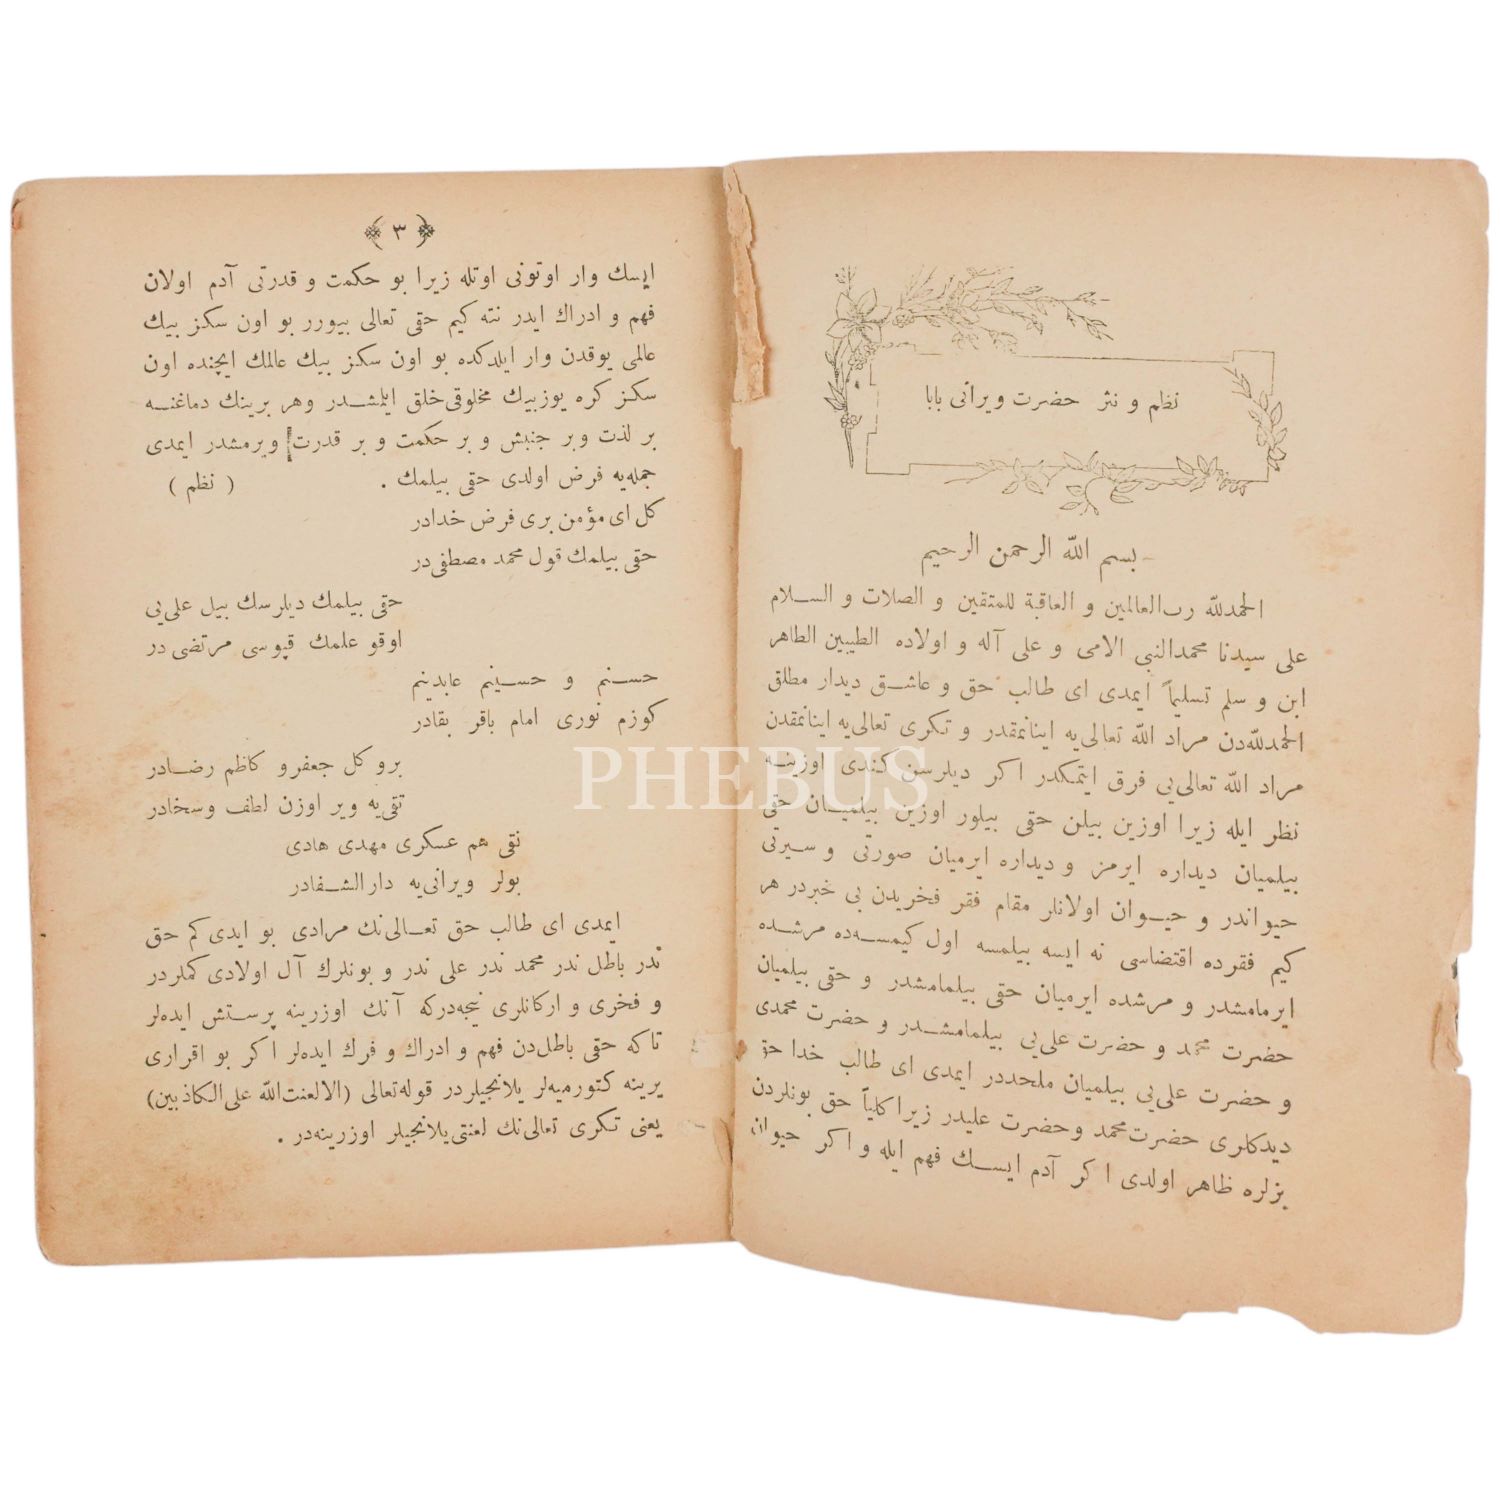 نظم و نثر حضرت ویرانی بابا
بسم الله الرحمن الرحیم
الحمدلله رب‌العالمین و العاقبة للمتقین و الصلات و السلام
علی سیدنا محمدالنبی الامی و علی آله و اولاده الطیبین الطاهر
ابن و سلم تسلیماً ایمدی ای طالب حق و عاشق دیدار مطلق
الحمدلله‌دن مراد الله تعالی‌یه اینانمقدر و تکری تعالی‌یه اینانمقدن
مراد الله تعالی‌یی فرق ایتمکدر اکر دیلرسن کندی اوزینه
نظر ایله زیرا اوزین بیلن حقی بیلور اوزین بیلمیان حقی
بیلمیان دیداره ایرمز و دیداره ایرمیان صورتی و سیرتی
حیواندر و حیوان اولانلر مقام فقر فخریدن بی خبردر هر
کیم فقرده اقتضاسی نه ایسه بیلمسه اول کیمسه‌ده مرشده
ایرمامشدر و مرشده ایرمیان حقی بیلمامشدر و حقی بیلمیان
حضرت محمد و حضرت علی‌یی بیلمامشدر و حضرت محمدی
و حضرت علی‌یی بیلمیان ملحددر ایمدی ای طالب خدا حق
دیدکلری حضرت محمد و حضرت علیدر زیرا کلیاً حق بونلردن
بزلره ظاهر اولدی اکر آدم ایسک فهم ایله و اکر حیوان
٣
ایسك وار اوتونی اوتله زیرا بو حکمت و قدرتی آدم اولان
فهم و ادراك ایدر نته کیم حقی تعالی بیورر بو اون سکز بیك
عالمی یوقدن وار ایلدکده بو اون سکز بیك عالمك ایچنده اون
سکز کره یوزبیك مخلوقی خلق ایلمشدر وهر برینك دماغنه
بر لذت وبر جنبش و بر حکمت و بر قدرت ویرمشدر ایمدی
جمله‌یه فرض اولدی حقی بیلمك . ( نظم )
کل ای مؤمن بری فرض خدادر
حقی بیلمك قول محمد مصطفی‌در
حقی بیلمك دیلرسك بیل علی‌یی
اوقو علمك قپوسی مرتضی در
حسنم و حسینم عابدینم
کوزم نوری امام باقر بقادر
برو کل جعفرو کاظم رضادر
تقی‌یه ویر اوزن لطف وسخادر
نقی هم عسکری مهدی هادی
بولر ویرانی‌یه دارالشفادر
ایمدی ای طالب حق تعالی‌نك مرادی بو ایدی کم حق
ندر باطل ندر محمد ندر علی ندر و بونلرك آل اولادی کملر در
و فخری و ارکانلری نیجه‌درکه آنك اوزرینه پرستش ایده‌لر
تاکه حقی باطل‌دن فهم و ادراك و فرك ایده‌لر اکر بو اقراری
یرینه کتورمیه‌لر یلانجیلردر قوله‌تعالی (الالعنت‌الله علی‌الکاذبین)
یعنی تکری تعالی‌نك لعنتی یلانجیلر اوزرینه‌در .
PHEBUS